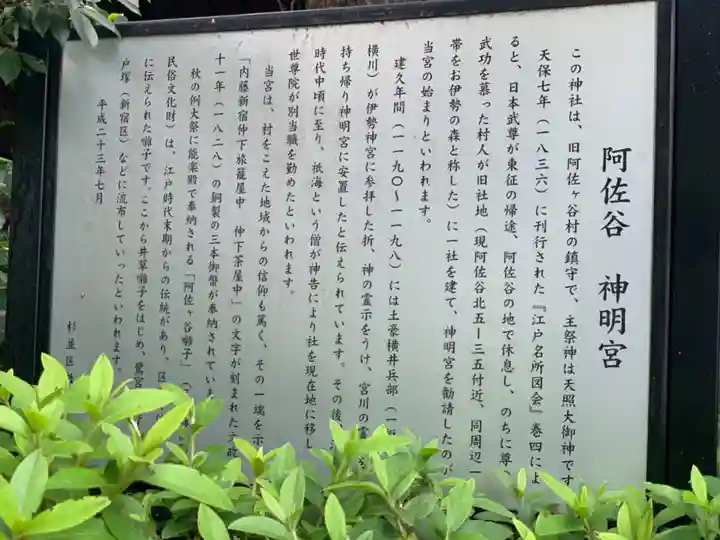 阿佐谷 神明宮
この神社は、旧阿佐ヶ谷村の鎮守で、主祭神は天照大御神です
天保七年（一八三六）に刊行された『江戸名所図会』巻四によ
ると、日本武尊が東征の帰途、阿佐谷の地で休息し、のちに尊
武功を慕った村人が旧社地（現阿佐谷北五ー三五付近、同周辺一
帯をお伊勢の森と称した）に一社を建て、神明宮を勧請したのが
当宮の始まりといわれます。
建久年間（一一九〇〜一一九八）には土豪横井兵部（一
横川）が伊勢神宮に参拝した折、神の霊示をうけ、宮川の霊
持ち帰り神明宮に安置したと伝えられています。その後、
時代中頃に至り、祇海という僧が神告により社を現在地に移し
世尊院が別当職を勤めたといわれます。
当宮は、村をこえた地域からの信仰も篤く、その一端を示
「内藤新宿仲下旅籠屋中 仲下茶屋中」の文字が刻まれた文政
十一年（一八二八）の銅製の三本御幣が奉納されていま
秋の例大祭に能楽殿で奉納される「阿佐ヶ谷囃子」（
民俗文化財）は、江戸時代末期からの伝統があり、区
に伝えられた囃子です。ここから井草囃子をはじめ、鷺
戸塚（新宿区）などに流布していったといわれます。
平成二十三年七月
杉並区